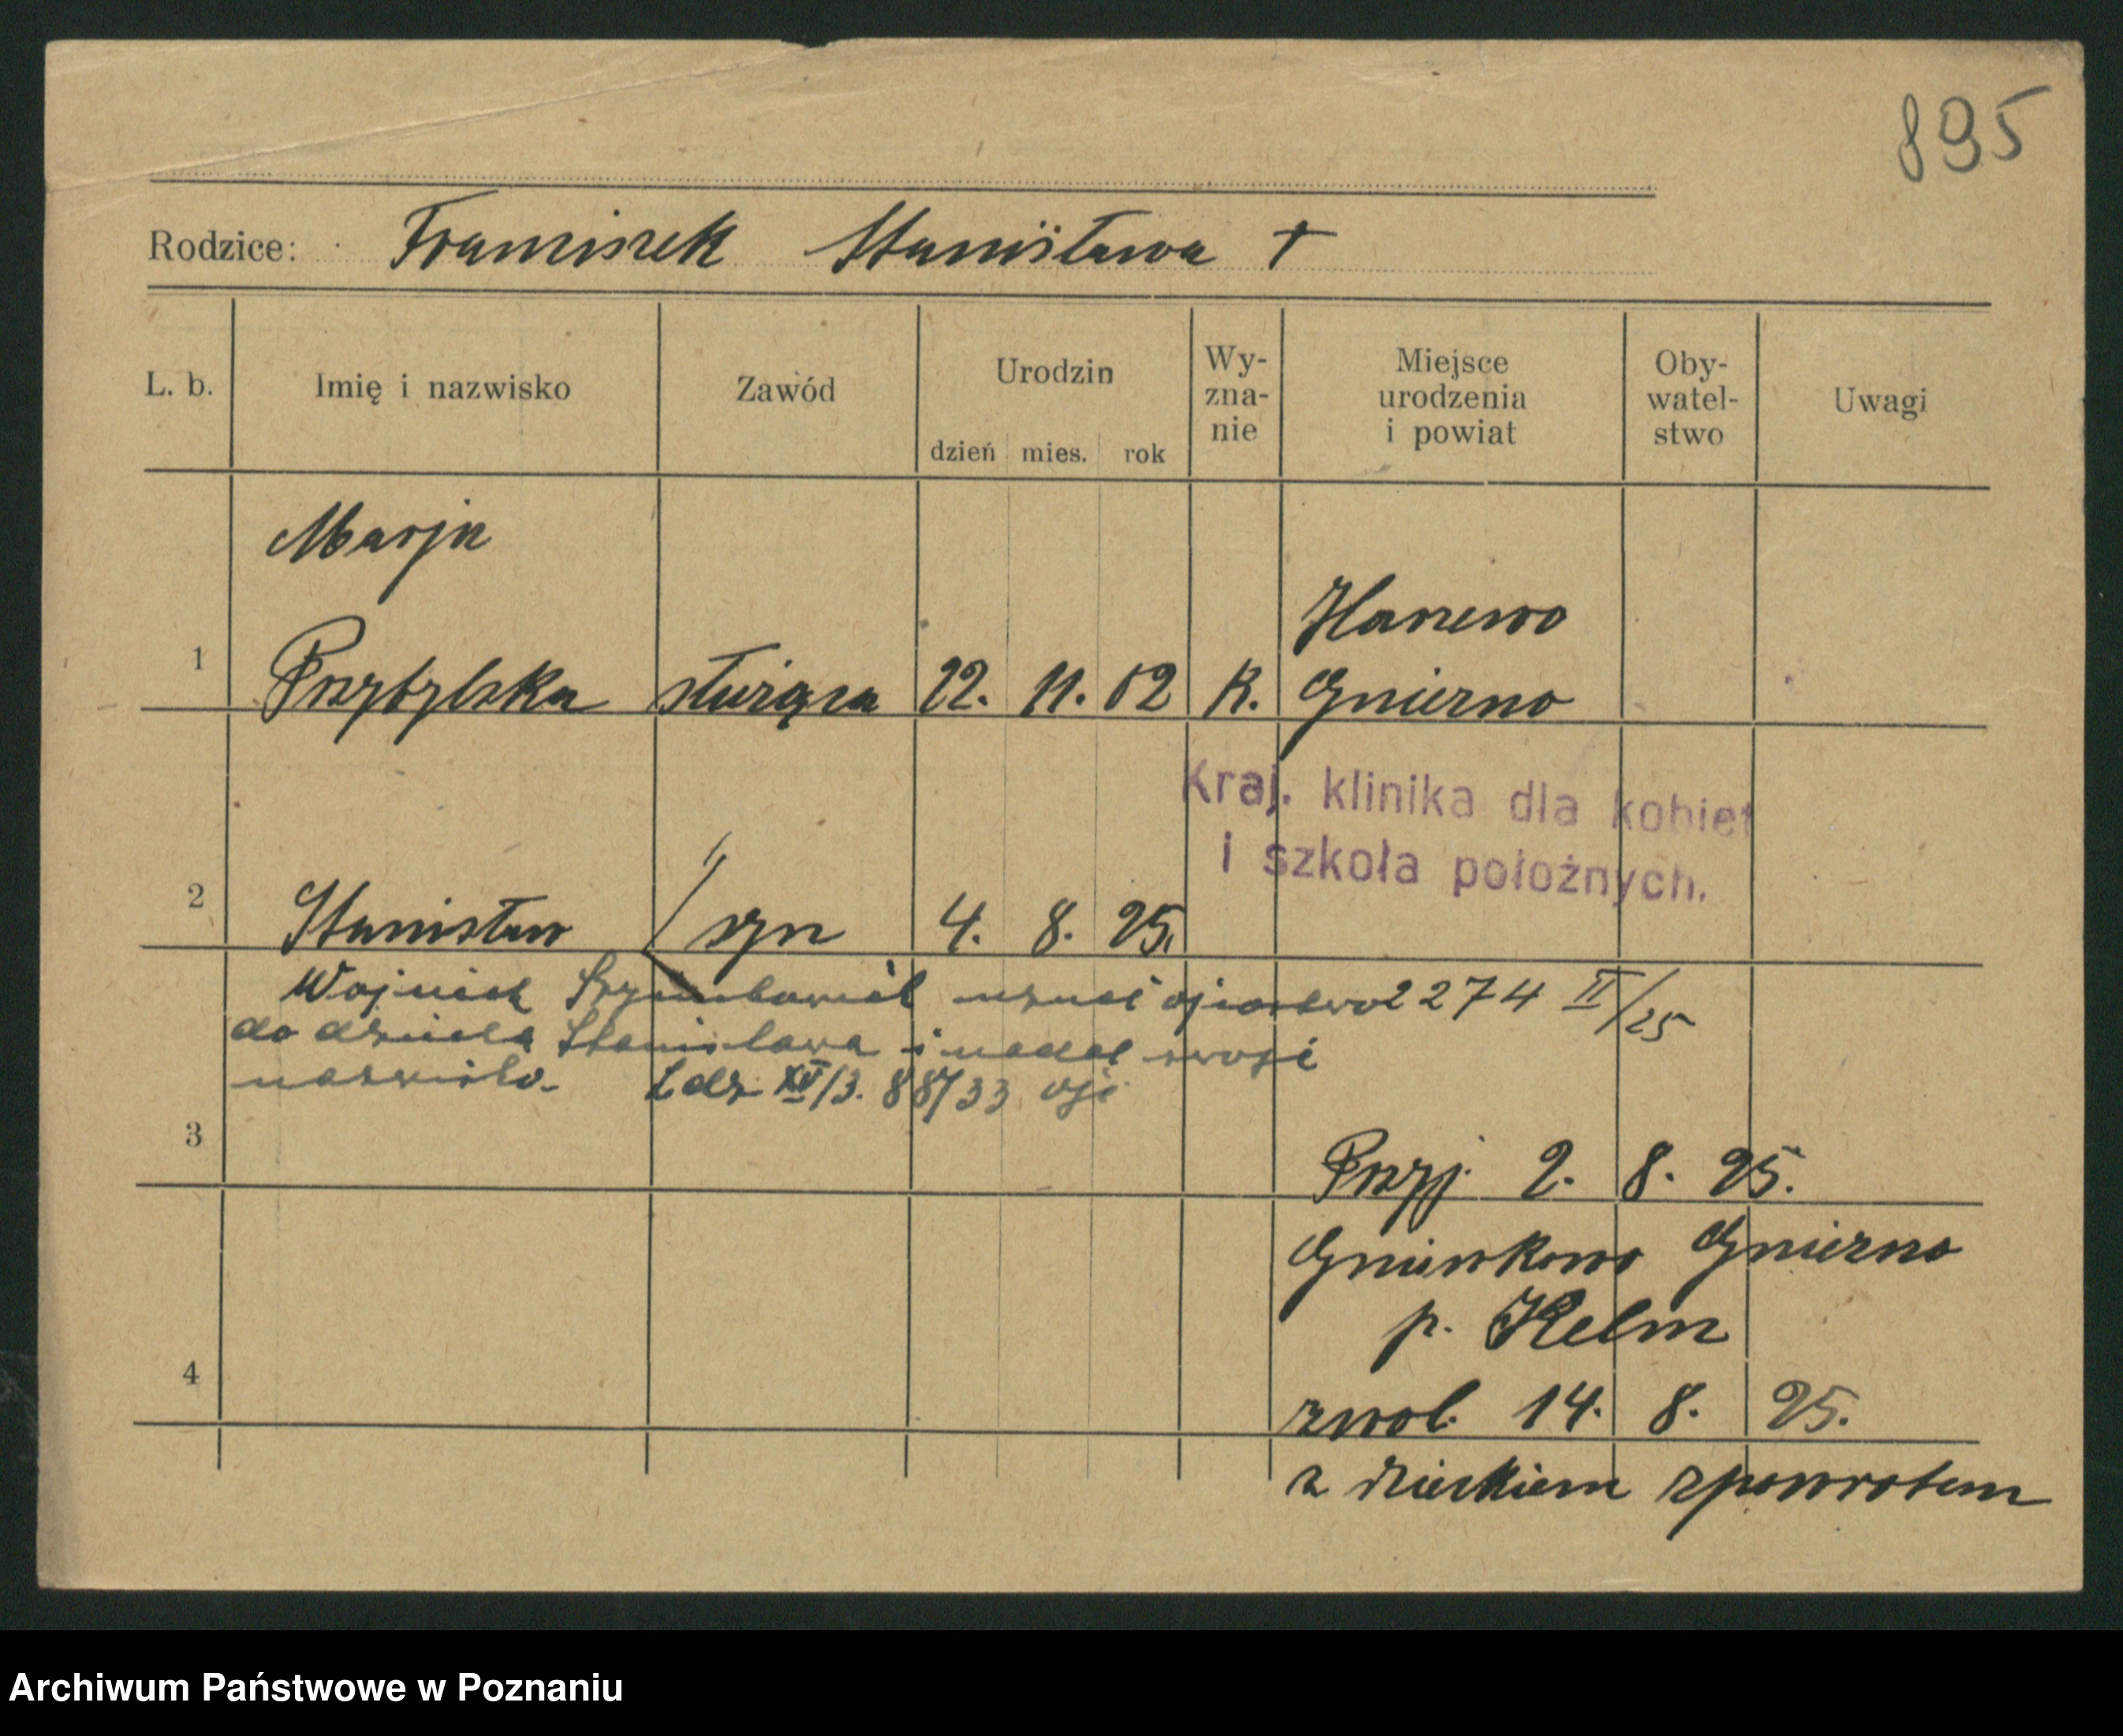 895
Rodzice: Franciszek Stanisława †
L. b. Imię i nazwisko Zawód Urodzin dzień mies. rok Wy-zna-nie Miejsce urodzenia i powiat Oby-watel-stwo Uwagi
Marja
1 Przybylska służąca 22. 11. 02 K. Gniezno
Kraj. klinika dla kobiet
i szkoła położnych.
2 Stanisław syn 4. 8. 25.
uznał ojcostwo 2274 II/25
do dziecka Stanisława i nadał swoje
nazwisko. L dz XV/3. 88/33
3
Przyj. 2. 8. 25.
Gniewkowo Gniezno
p. Kelm
4
zwol. 14. 8. 25.
z dzieckiem zpowrotem
Archiwum Państwowe w Poznaniu